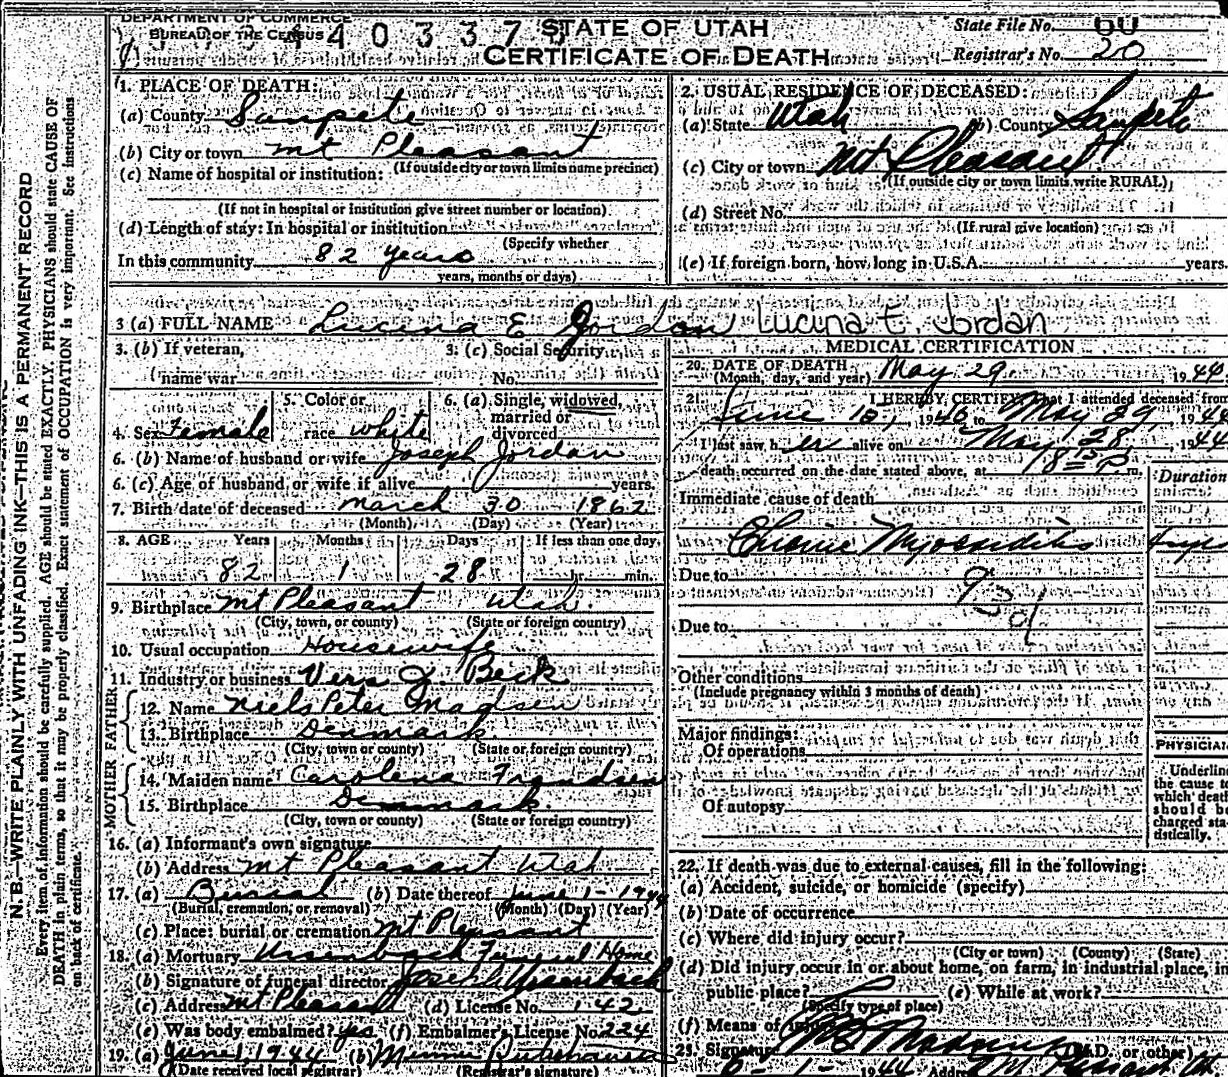 DEPARTMENT OF COMMERCE
BUREAU OF THE CENSUS
4 4 0 3 3 7
STATE OF UTAH
CERTIFICATE OF DEATH
State File No. 60
Registrar's No. 20
N. B.—WRITE PLAINLY WITH UNFADING INK—THIS IS A PERMANENT RECORD
Every item of information should be carefully supplied. AGE should be stated EXACTLY. PHYSICIANS should state CAUSE OF
DEATH in plain terms, so that it may be properly classified. Exact statement of OCCUPATION is very important. See instructions
on back of certificate.
1. PLACE OF DEATH:
(a) County Sanpete
(b) City or town Mt Pleasant
(If outside city or town limits name precinct)
(c) Name of hospital or institution:
(If not in hospital or institution give street number or location)
(d) Length of stay: In hospital or institution
(Specify whether
In this community 82 years
years, months or days)
2. USUAL RESIDENCE OF DECEASED:
(a) State Utah (b) County Sanpete
(c) City or town Mt Pleasant
(If outside city or town limits write RURAL)
(d) Street No.
(If rural give location)
(e) If foreign born, how long in U.S.A. years.
3 (a) FULL NAME Lucina E Jordan Lucina E. Jordan
3. (b) If veteran,
name war
3. (c) Social Security
No.
4. Sex Female
5. Color or
race white
6. (a) Single, widowed,
married or
divorced
6. (b) Name of husband or wife Joseph Jordan
6. (c) Age of husband or wife if alive years.
7. Birth date of deceased March 30 1862
(Month) (Day) (Year)
8. AGE Years Months Days If less than one day
82 1 28 hr. min.
9. Birthplace Mt Pleasant Utah
(City, town, or county) (State or foreign country)
10. Usual occupation Housewife
11. Industry or business Beck
FATHER
12. Name Niels Peter Madsen
13. Birthplace Denmark
(City, town or county) (State or foreign country)
MOTHER
14. Maiden name Carolena Frandsen
15. Birthplace Denmark
(City, town or county) (State or foreign country)
16. (a) Informant's own signature
(b) Address Mt Pleasant Utah
17. (a) Burial (b) Date thereof June 1-1944
(Burial, cremation, or removal) (Month) (Day) (Year)
(c) Place: burial or cremation Mt Pleasant
18. (a) Mortuary Ursenbach Funeral Home
(b) Signature of funeral director Joseph Ursenbach
(c) Address Mt Pleasant (d) License No. 142
(e) Was body embalmed? Yes (f) Embalmer's License No. 224
19. (a) June 1, 1944 (b) Minnie
(Date received local registrar) (Registrar's signature)
MEDICAL CERTIFICATION
20. DATE OF DEATH
(Month, day, and year) May 29, 1944
21. I HEREBY CERTIFY, that I attended deceased from
June 1940 to May 29, 1944
I last saw her alive on May 28, 1944
death occurred on the date stated above, at m.
Duration
Immediate cause of death
Chronic Myocarditis
Due to
93d
Due to
Other conditions
(Include pregnancy within 3 months of death)
Major findings:
Of operations
Of autopsy
PHYSICIAN
Underline
the cause to
which death
should be
charged sta-
tistically.
22. If death was due to external causes, fill in the following:
(a) Accident, suicide, or homicide (specify)
(b) Date of occurrence
(c) Where did injury occur?
(City or town) (County) (State)
(d) Did injury occur in or about home, on farm, in industrial place, in
public place? (e) While at work?
(Specify type of place)
(f) Means of injury
23. Signature Madsen (M.D. or other)
6-1-1944 Address Mt Pleasant Ut.